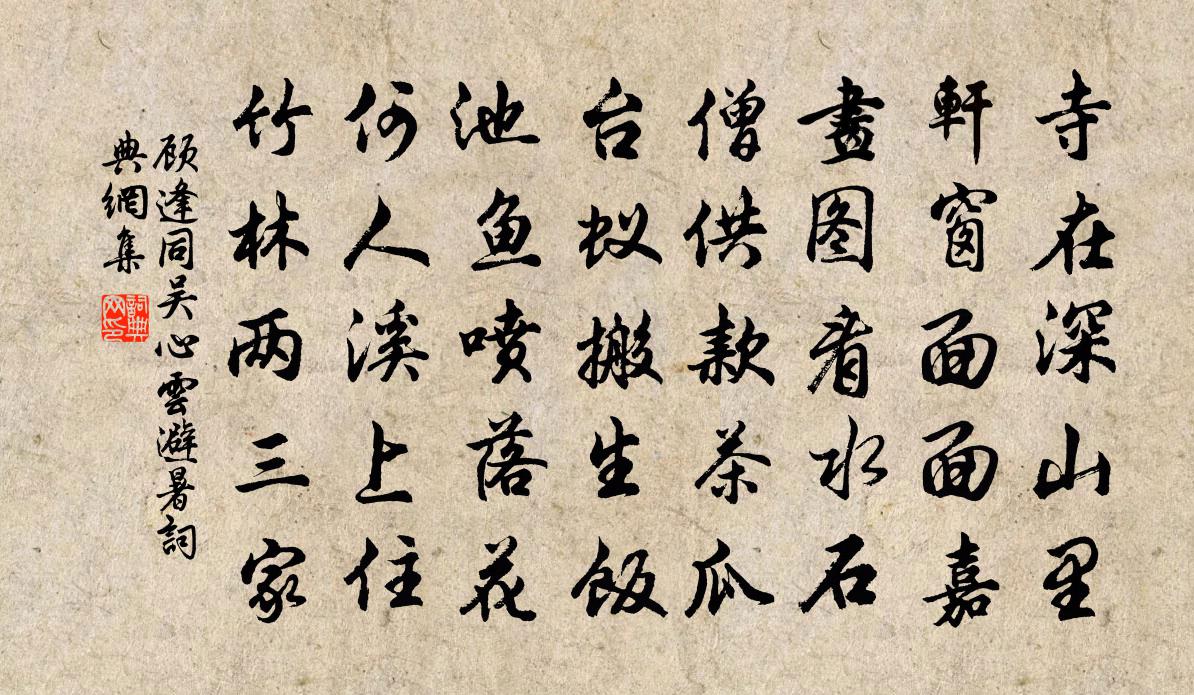 寺在深山里
軒窗面面嘉
畫图看水石
僧供款茶瓜
台蚁搬生飯
池鱼噴落花
何人溪上住
竹林两三家
顾逢同吴心雲避暑詞
典網集
詞典
网印